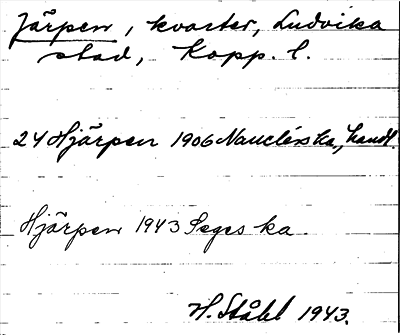 Järpen, kvarter, Ludvika
stad, Kopp. l.
24 Hjärpen 1906 Nauclérs ka, handl.
Hjärpen 1943 Seges ka.
H. Ståhl 1943.